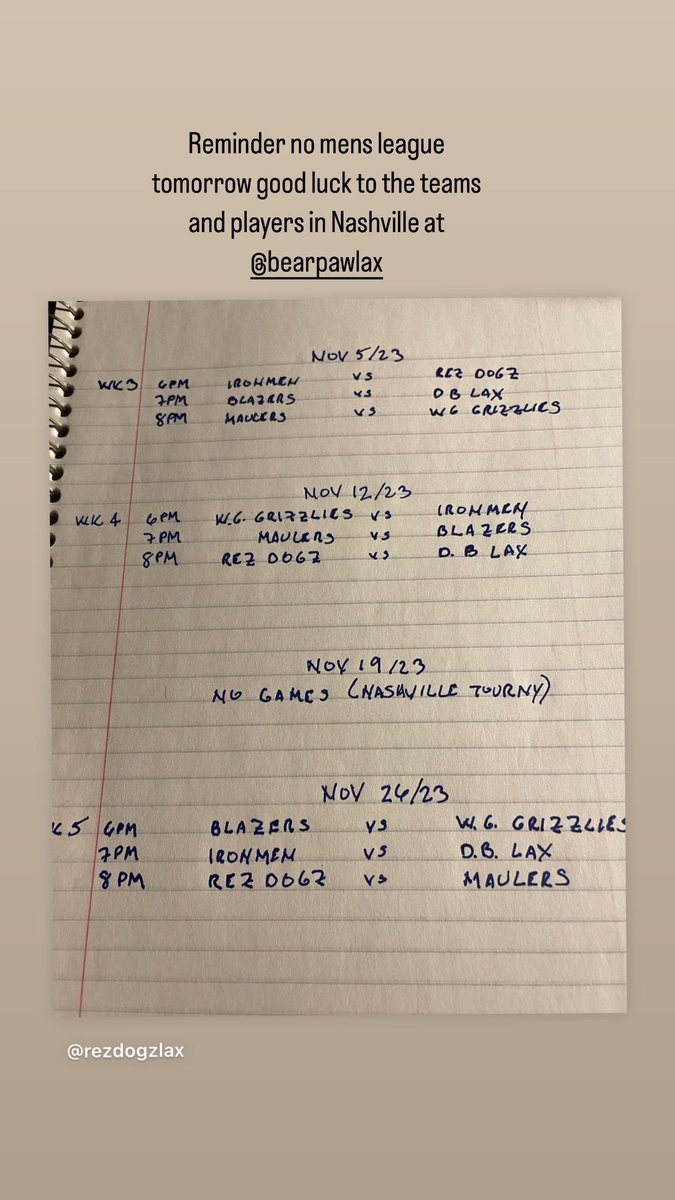 Reminder no mens league
tomorrow good luck to the teams
and players in Nashville at
@bearpawlax
NOV 5/23
WK3 6PM IRONMEN VS REZ DOGZ
7PM BLAZERS VS D B LAX
8PM MAULERS VS W.G GRIZZLIES
NOV 12/23
WK 4 6PM W.G. GRIZZLIES VS IRONMEN
7PM MAULERS VS BLAZERS
8PM REZ DOGZ VS D. B LAX
NOV 19/23
NO GAMES (NASHVILLE TOURNY)
NOV 26/23
K 5 6PM BLAZERS VS W.G. GRIZZLIES
7PM IRONMEN VS D.B. LAX
8 PM REZ DOGZ VS MAULERS
@rezdogzlax